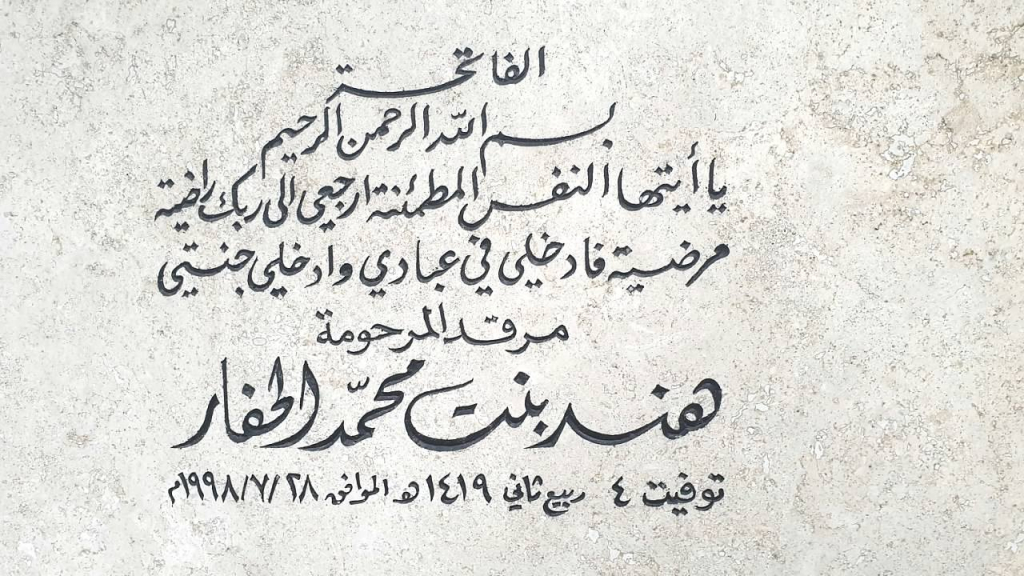 الفاتحة
بسم الله الرحمن الرحيم
يا أيتها النفس المطمئنة ارجعي الى ربك راضية
مرضية فادخلي في عبادي وادخلي جنتي
مرقد المرحومة
هند بنت محمّد الحفار
توفيت ٤ ربيع ثاني ١٤١٩ هـ الموافق ٢٨/٧/١٩٩٨م